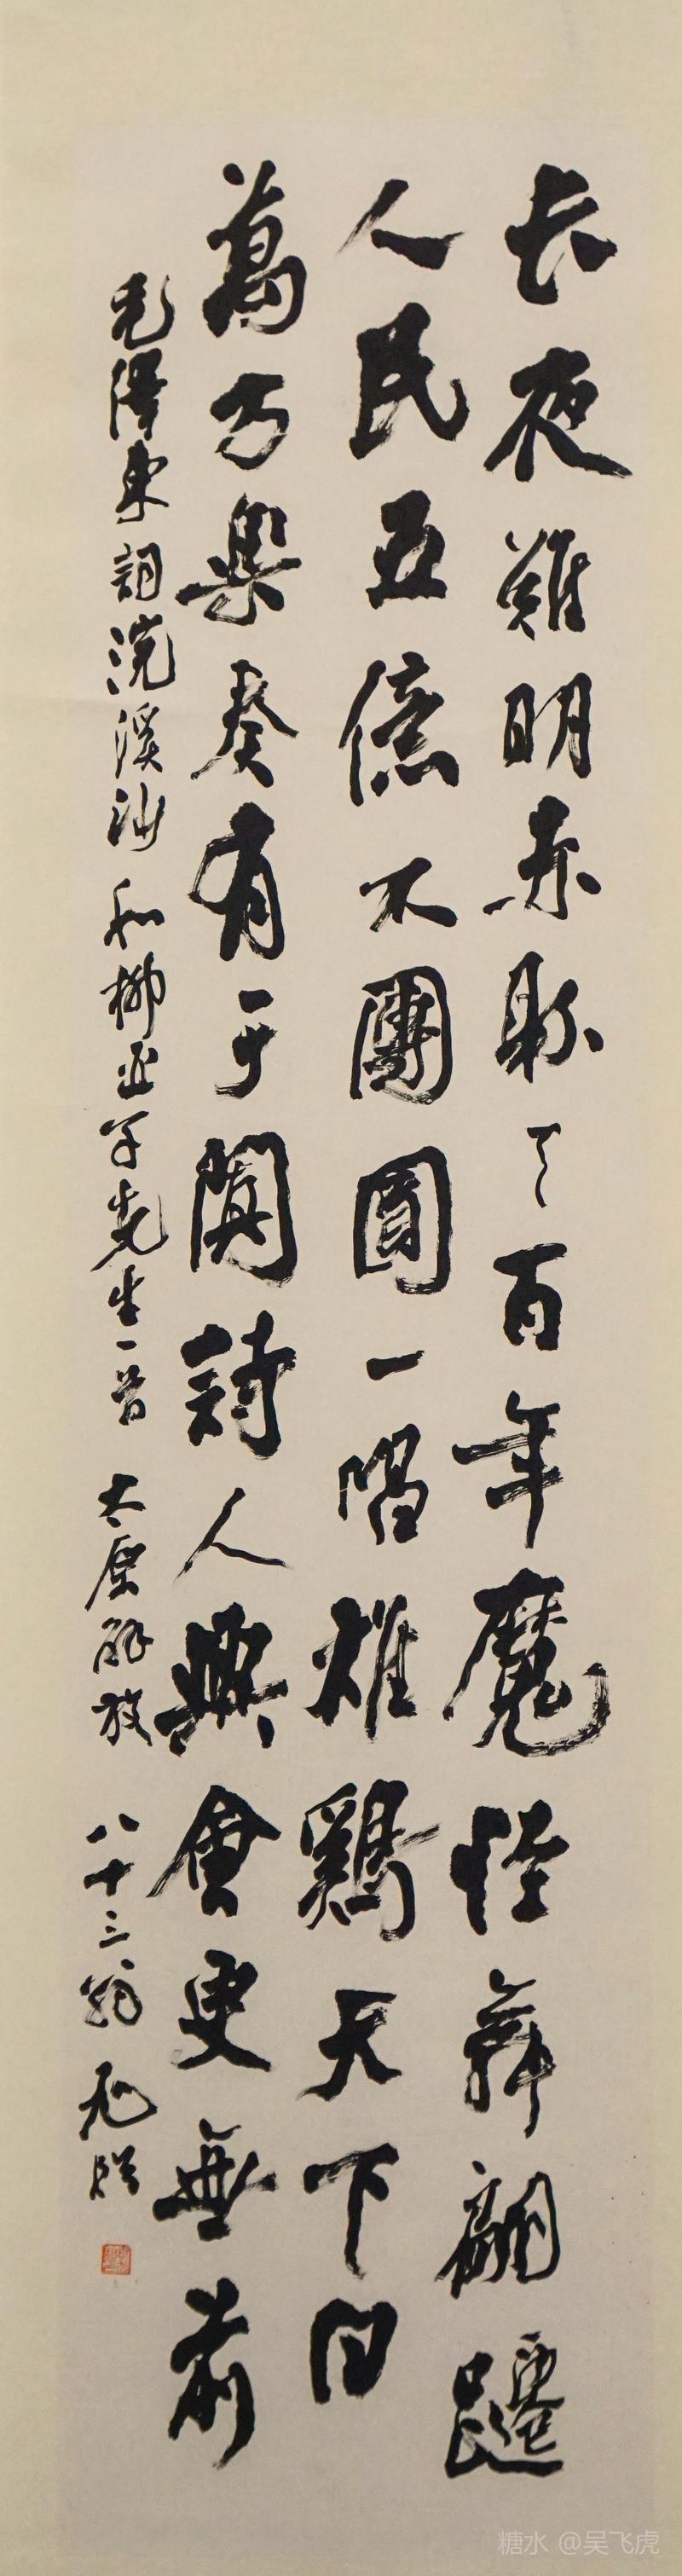 长夜難明赤縣天百年魔怪舞翩躚
人民五億不團圓一唱雄鷄天下白
萬方樂奏有于闐詩人興會更無前
毛澤東詞浣溪沙和柳亞子先生一首 太原解放 八十三翁 旭臨
糖水 @吴飞虎